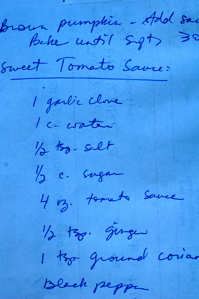 Brown pumpkin - Add sau
Bake until soft, 30
Sweet Tomato Sauce:
1 garlic clove
1 c. water
1/2 tsp. salt
1/2 c. sugar
4 oz. tomato sauce
1/2 tsp. ginger
1 tsp. ground corian
Black pepper